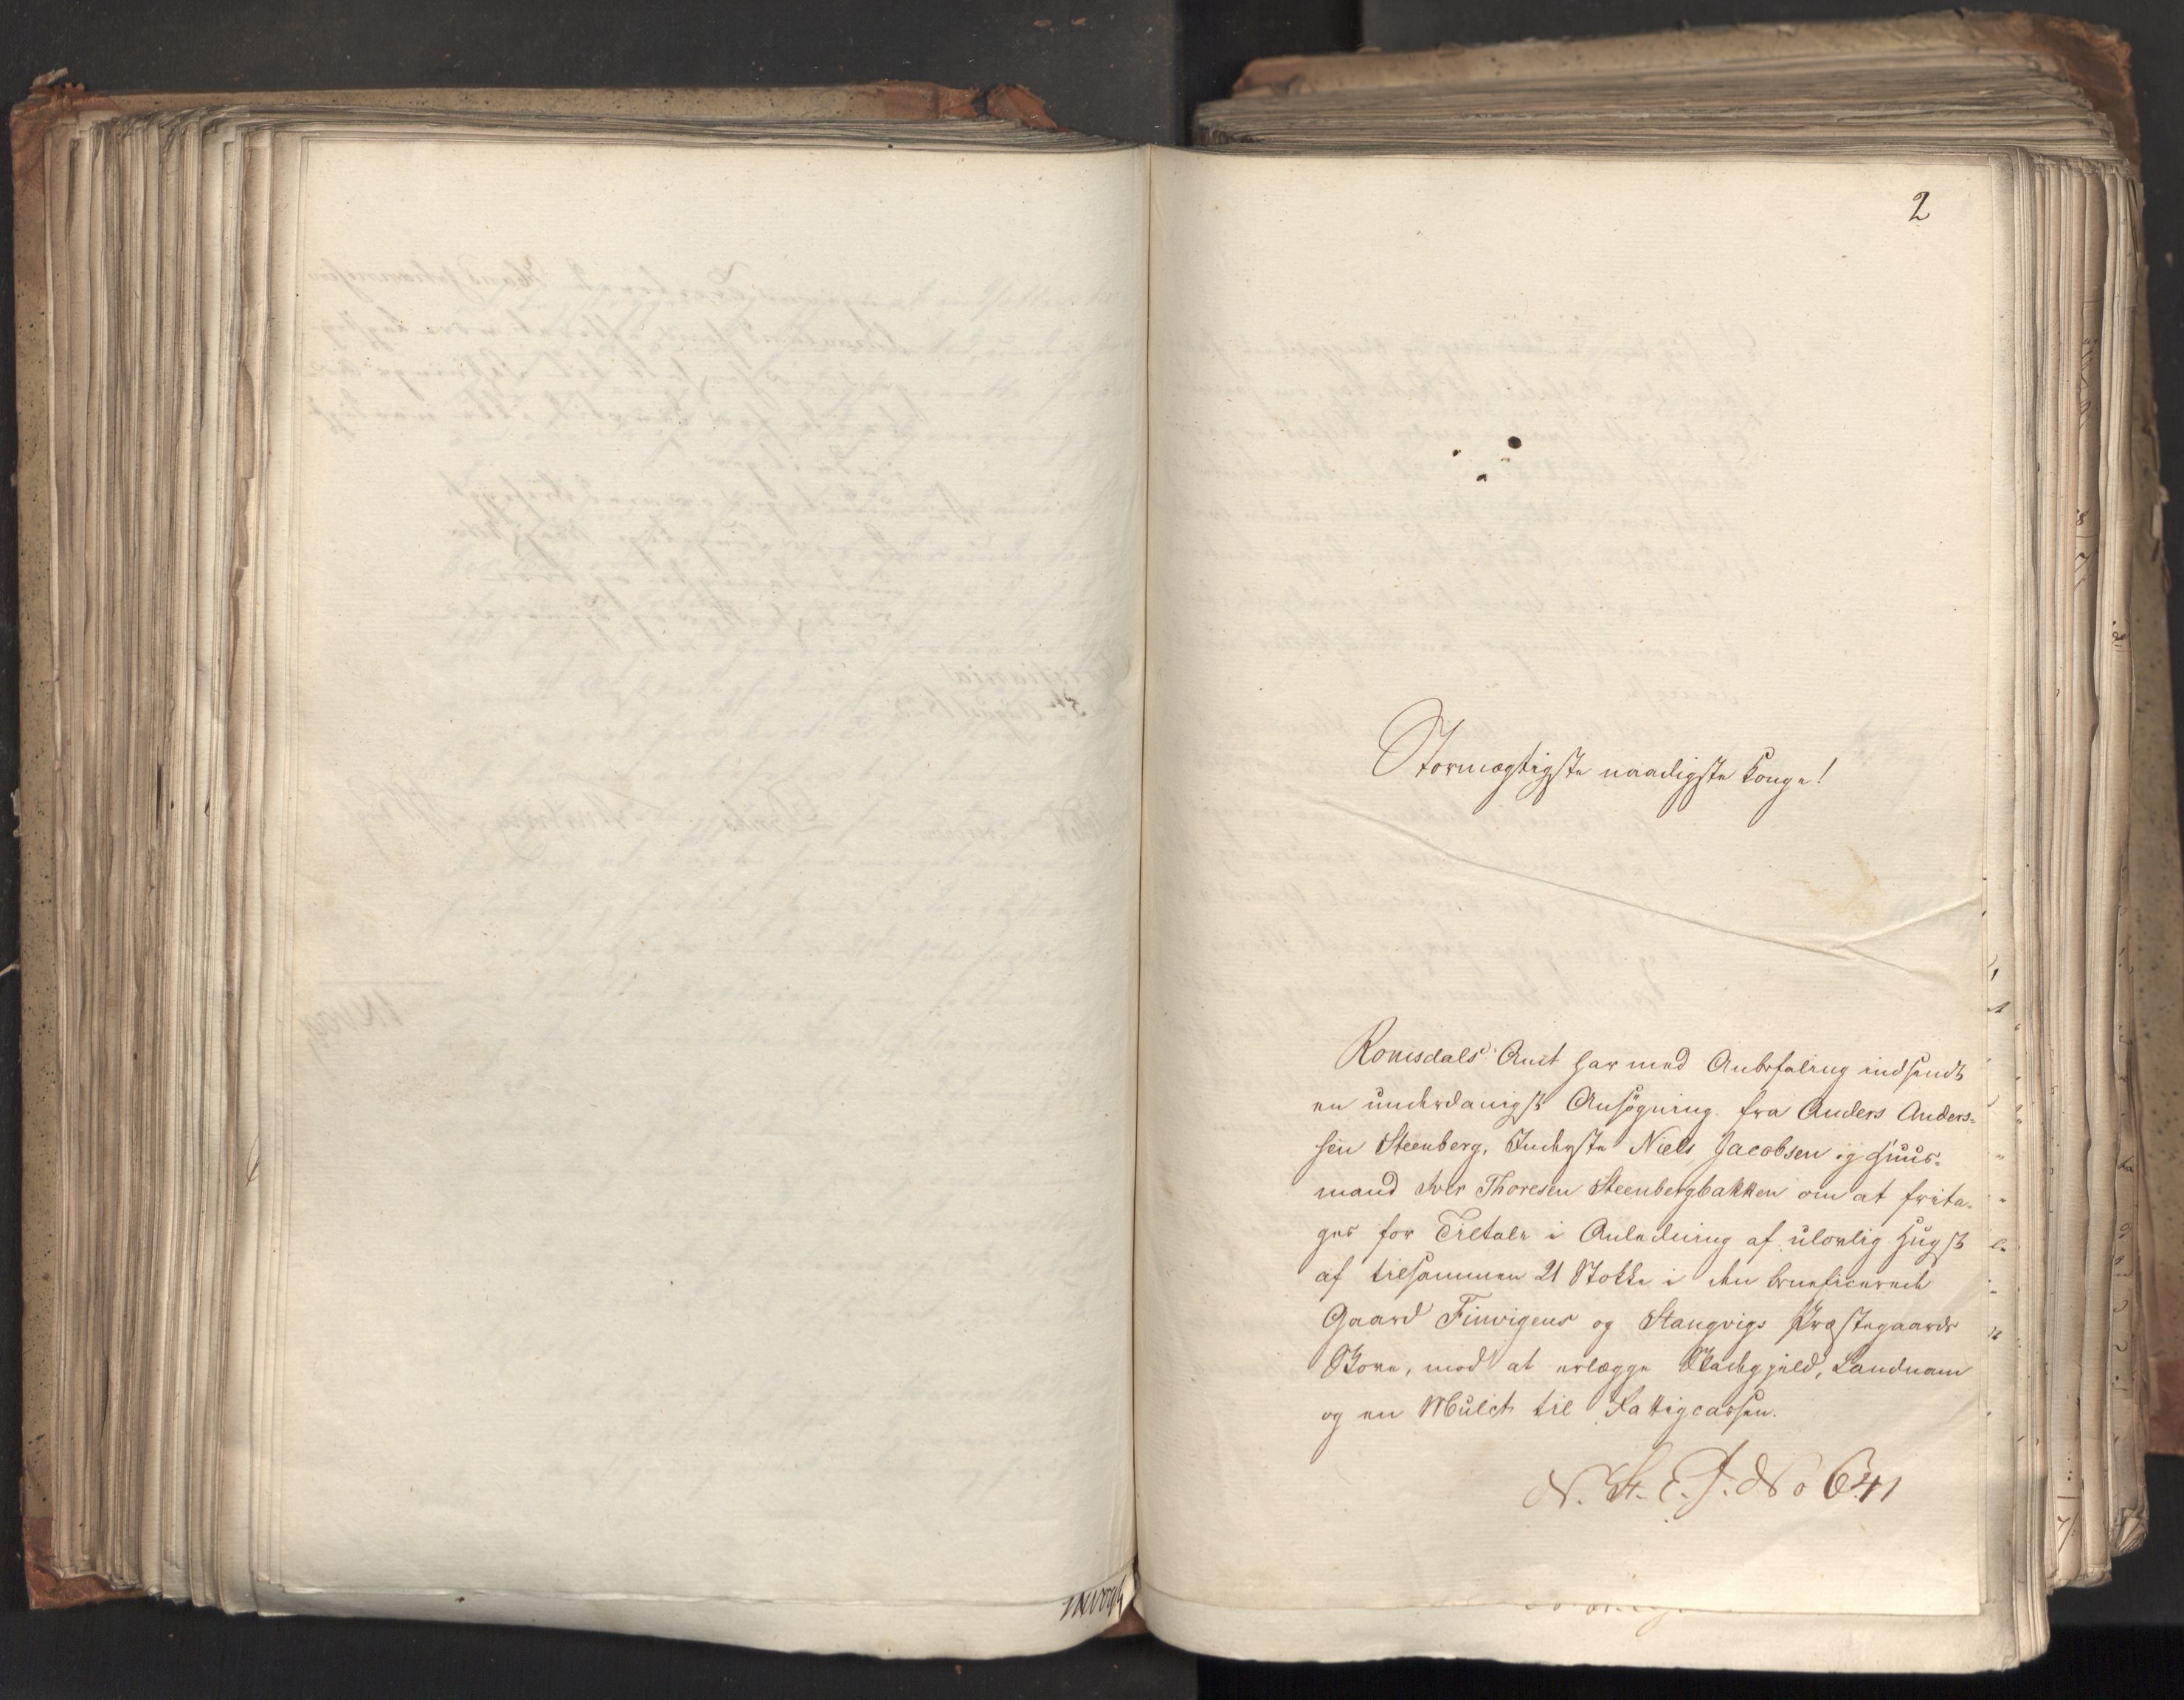 2
Stormægtigste naadigste Konge!
Romsdals Amt har med Anbefaling indsendt
en underdanigst Ansøgning fra Anders Anders-
sen Steenberg, Inderste Niels Jacobsen og Huus-
mand Iver Thoresen Steenbergbakken om at frita-
ges for Tiltale i Anledning af ulovlig Hugst
af tilsammen 21 Stokke i den beneficerede
Gaard Finvigens og Stangvigs Præstegaards
Skove, mod at erlægge Skadegjæld, Landnam
og en Mulct til Fattigcassen.
N. St. E. J. No 641